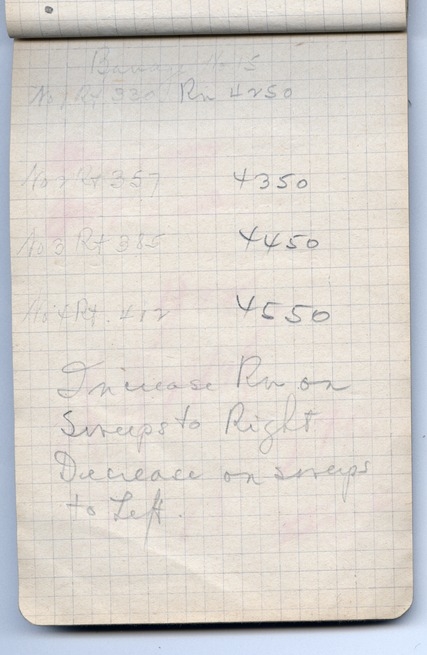 Barrage No 5
No 1 Rt 330 Rn 4250
No 2 Rt 357 4350
No 3 Rt 385 4450
No 4 Rt. 412 4550
Increase Rn on
Sweeps to Right
Decrease on sweeps
to Left.